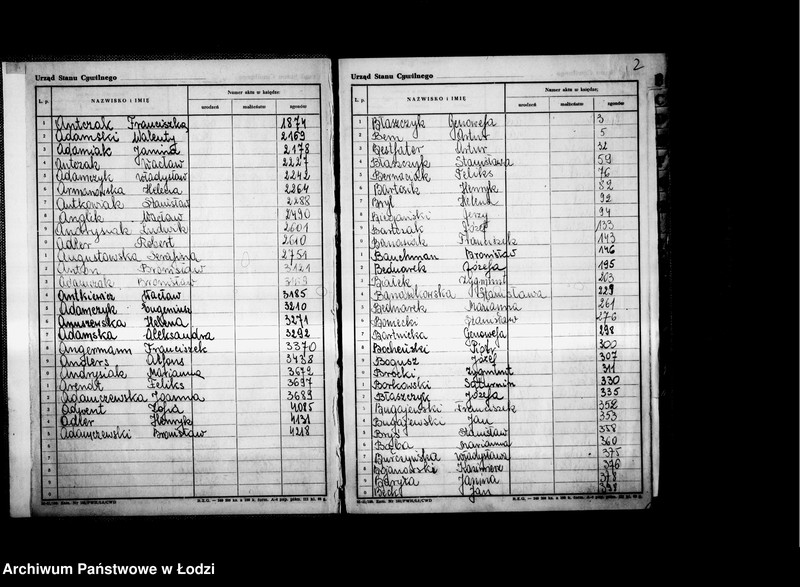 Urząd Stanu Cywilnego
L. p. NAZWISKO i IMIĘ Numer aktu w księdze:
urodzeń małżeństw zgonów
1 Antczak Franciszka 1874
2 Adamski Walenty 2169
3 Adamiak Janina 2178
4 Antczak Wacław 2227
5 Adamczyk Władysław 2242
6 Armanowska Helena 2264
7 Antkowiak Stanisław 2288
8 Anglik Wacław 2490
9 Andrysiak Ludwik 2601
0 Adler Robert 2610
1 Augustowska Serafina 2751
2 Anton Bronisław 3121
3 Adamczak Bronisław
4 Antkiewicz Wacław 3185
5 Adamczyk Eugeniusz 3210
6 Helena 3271
7 Adamska Aleksandra 3292
8 Angermann Franciszek 3370
9 Anders Alfons 3438
0 Andrysiak Marianna 3672
1 Arendt Feliks 3697
2 Adamczewska Joanna 3689
3 Adwent Zofia 4085
4 Adler Henryk 4131
5 Adamczewski Bronisław 4218
6
7
8
9
0
2
Urząd Stanu Cywilnego
L. p. NAZWISKO i IMIĘ Numer aktu w księdze:
urodzeń małżeństw zgonów
1 Błaszczyk Genowefa 3
2 Bem Artur 5
3 Bestfater Artur 32
4 Błaszczyk Stanisława 59
5 Bernaciak Feliks 76
6 Bartosik Henryk 82
7 Bryl Helena 92
8 Jerzy 94
9 Bartczak Józef 133
0 Banasiak Franciszek 143
1 Bauchman Bronisław 146
2 Bednarek Józefa 195
3 Białek Zygmunt 203
4 Stanisława 229
5 Bednarek Marianna 261
6 Boniecki Stanisław 276
7 Bartnicka Genowefa 298
8 Bocheński Piotr 300
9 Bogusz Józef 307
0 Brocki Zygmunt 311
1 Borkowski Saturnin 330
2 Błaszczyk Józefa 335
3 Bugajewski Franciszek 352
4 Bugajewski Jan 353
5 Bryś Stanisław 358
6 Bąba Marianna 360
7 Burczyńska Władysława 375
8 Bojanowski Kazimierz 376
9 Baryka Janina 378
0 Beck Jan 398
Archiwum Państwowe w Łodzi